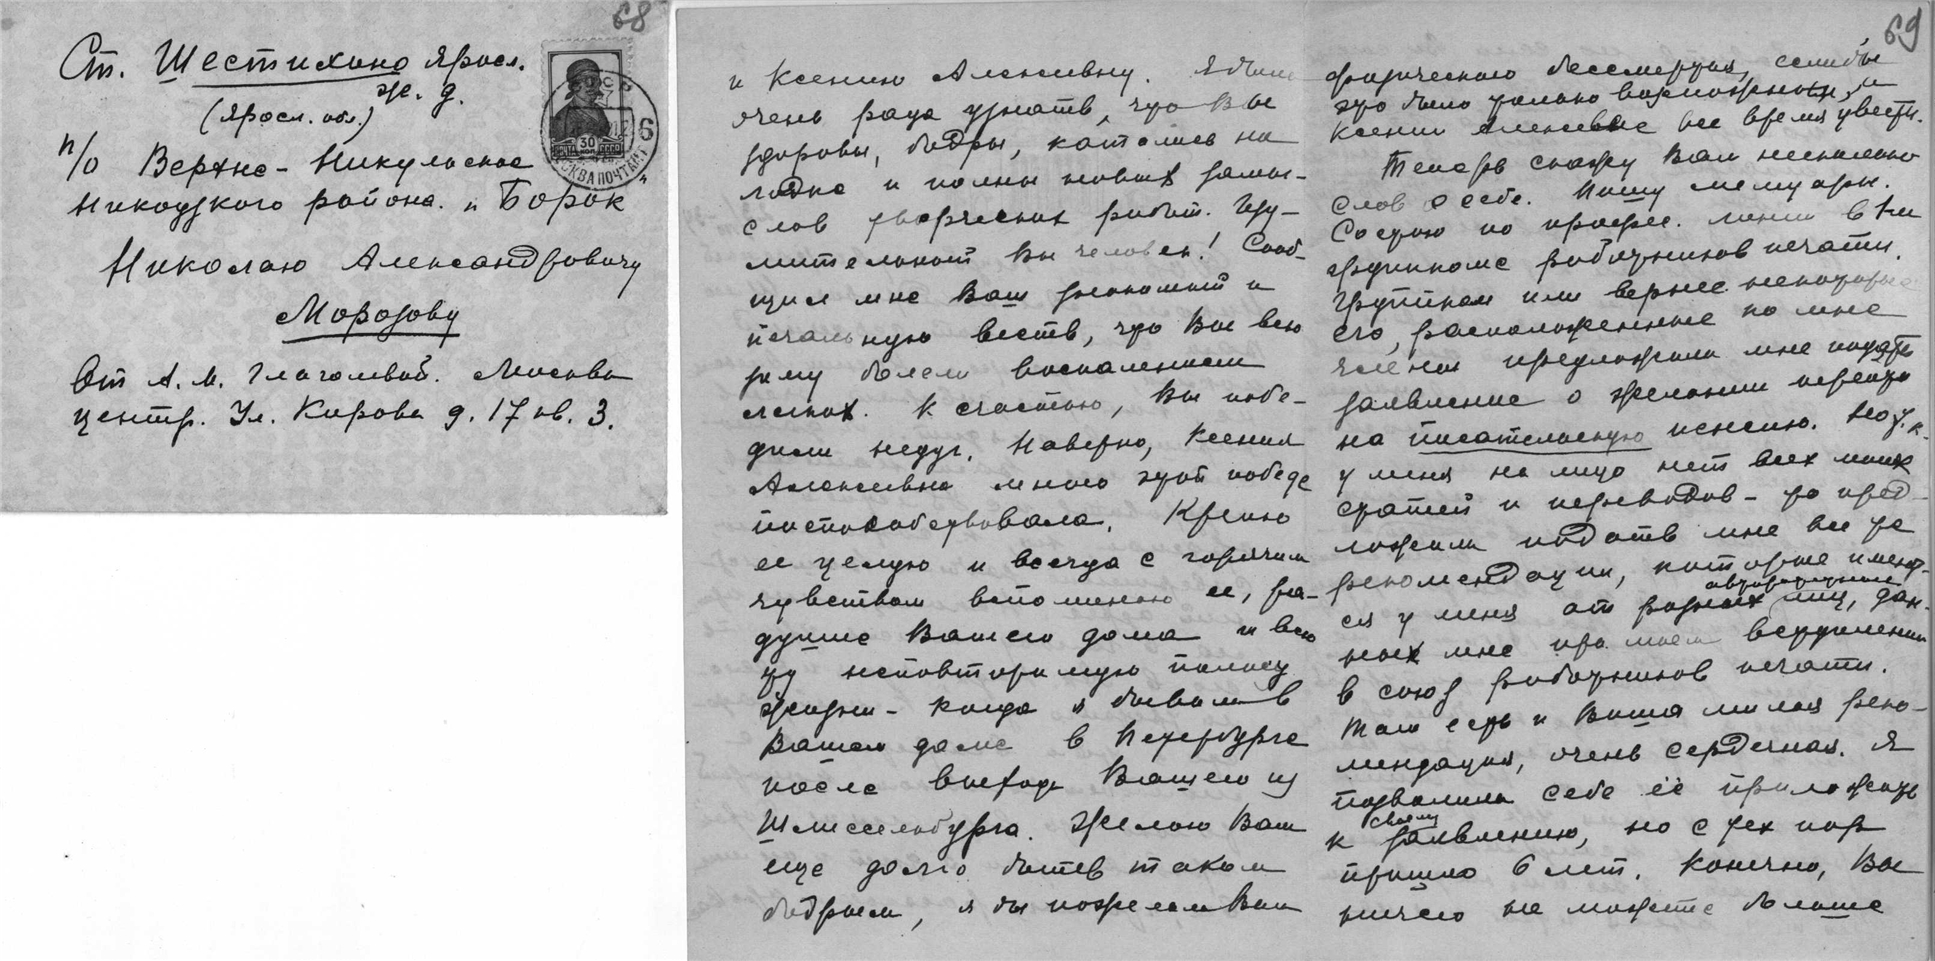 68
Ст. Шестихино Яросл.
ж. д.
(Яросл. обл.)
п/о Верхне-Никульское
Никоузского района. и Борок"
Николаю Александровичу
Морозову
От А. М. Глаголевой. Москва
центр. Ул. Кирова д. 17 кв. 3.
30 коп
ПОЧТА СССР
МОСКВА ПОЧТАМТ
6
69
и Ксению Алексеевну. Я была
очень рада узнать, что Вы
здоровы, бодры, катались на
лодке и полны новых замы-
слов творческих работ. Изу-
мительный Вы человек! Сооб-
щил мне Ваш знакомый и
печальную весть, что Вы всю
зиму болели воспалением
легких. К счастью, Вы побе-
дили недуг. Наверно, Ксения
Алексеевна много этой победе
поспособствовала. Крепко
ее целую и всегда с горячим
чувством вспоминаю ее, ра-
душие Вашего дома и всю
ту неповторимую полосу
жизни - когда я бывала в
Вашем доме в Петербурге
после выхода Вашего из
Шлиссельбурга. Желаю Вам
еще долго быть таким
бодрым, я бы пожелала Вам
физического бессмертия, если бы
это было только возможно, и
Ксении Алексеевне все время цвести.
Теперь скажу Вам несколько
слов о себе. Пишу мемуары.
Состою по профес. линии в
групкоме работников печати.
Группком или вернее некоторые
его, расположенные ко мне
члены предложили мне подать
заявление о желании перейти
на писательскую пенсию. Но т. к.
у меня на лицо нет всех моих
статей и переводов - то пред-
ложили подать мне все те
рекомендации, которые имеют-
ся у меня от разных авторитетных лиц, дан-
ных мне при моем вступлении
в союз работников печати.
Там есть и Ваша милая реко-
мендация, очень сердечная. Я
позволила себе её приложить
к своему заявлению, но с тех пор
прошло 6 лет. Конечно, Вы
ничего не можете больше